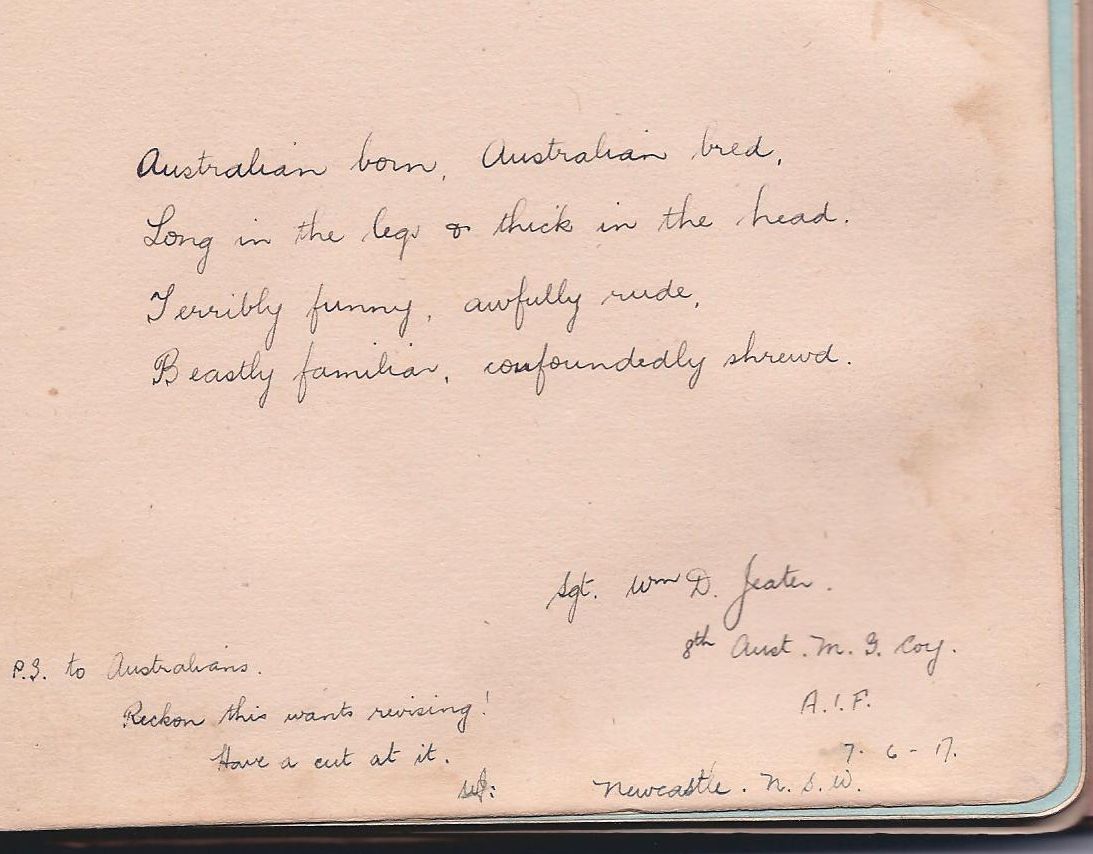 Australian born, Australian bred,
Long in the leg & thick in the head.
Terribly funny, awfully rude,
Beastly familiar, confoundedly shrewd.
Sgt. Wm D. Jeater.
8th Aust. M. G. Coy.
A.I.F.
7-6-17.
Newcastle. N.S.W.
P.S. to Australians.
Reckon this wants revising!
Have a cut at it.